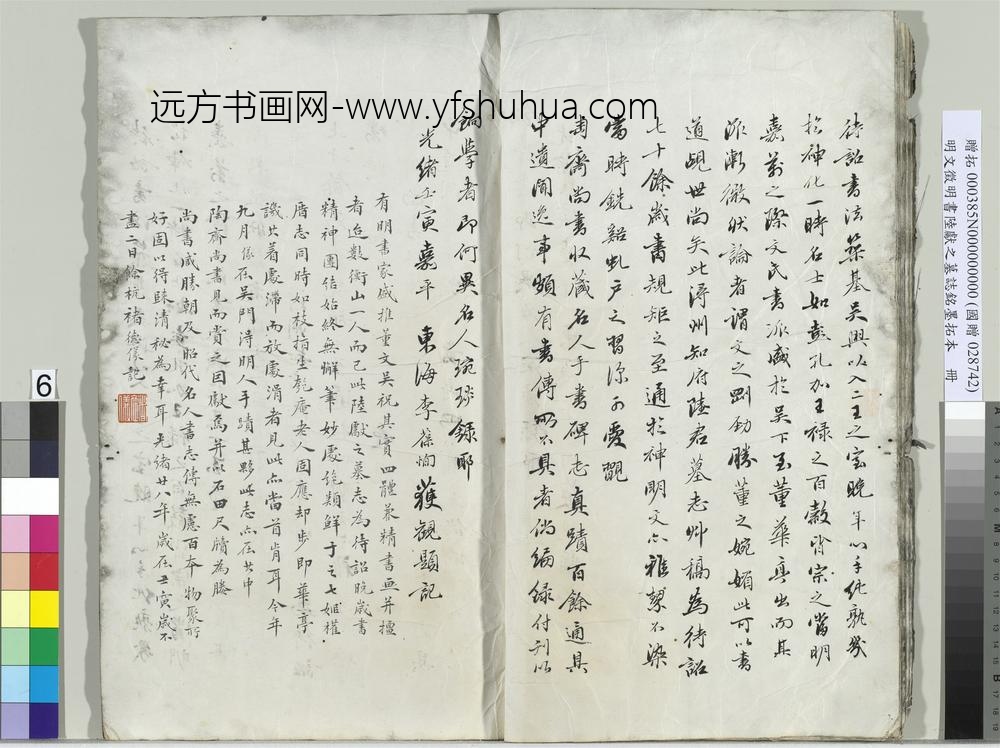 远方书画网-www.yfshuhua.com
待詔書法築基吳興以入二王之室晚年心手純孰幾
於神化一時名士如彭孔加王祿之百穀皆宗之當明
嘉萬之際文氏書派盛於吳下至董華亭出而其
派漸微狀論者謂文之剛勁勝董之婉媚此可以書
道覘世尚矣此潯州知府陸君墓志艸稿為待詔
七十餘歲書規矩之至通於神明文亦雅絜不染
當時銑谿虬戶之習深可愛翫
匋齋尚書收藏名人手書碑志真蹟百餘通其
中遺聞逸事頗有書傳所不具者倘編錄付刊以
餉學者即何異名人琬琰錄耶
光緒壬寅嘉平 東海李葆恂獲觀題記
有明書家盛推董文吳祝其實四體兼精書無并擅
者近數衡山一人而已此陸獻之墓志為待詔晚歲書
精神團結始終無懈筆妙處絕類鮮于之七姬權
厝志同時如枝指生乾庵老人固應却步即華亭
譏其著處滯而放處滑者見此亦當首肯耳今年
九月儀在吳門淂明人手蹟甚夥此志亦在其中
陶齋尚書見而賞之因獻焉并以石田尺牘為媵
尚書咸勝朝及昭代名人書志傳無慮百本物聚所
好固以得歸清秘為幸耳光緒廿八年歲在壬寅歲不
盡二日餘杭褚德儀記
贈拓 000385N000000000(國贈 028742)
明文徵明書陸獻之墓誌銘墨拓本 冊
6